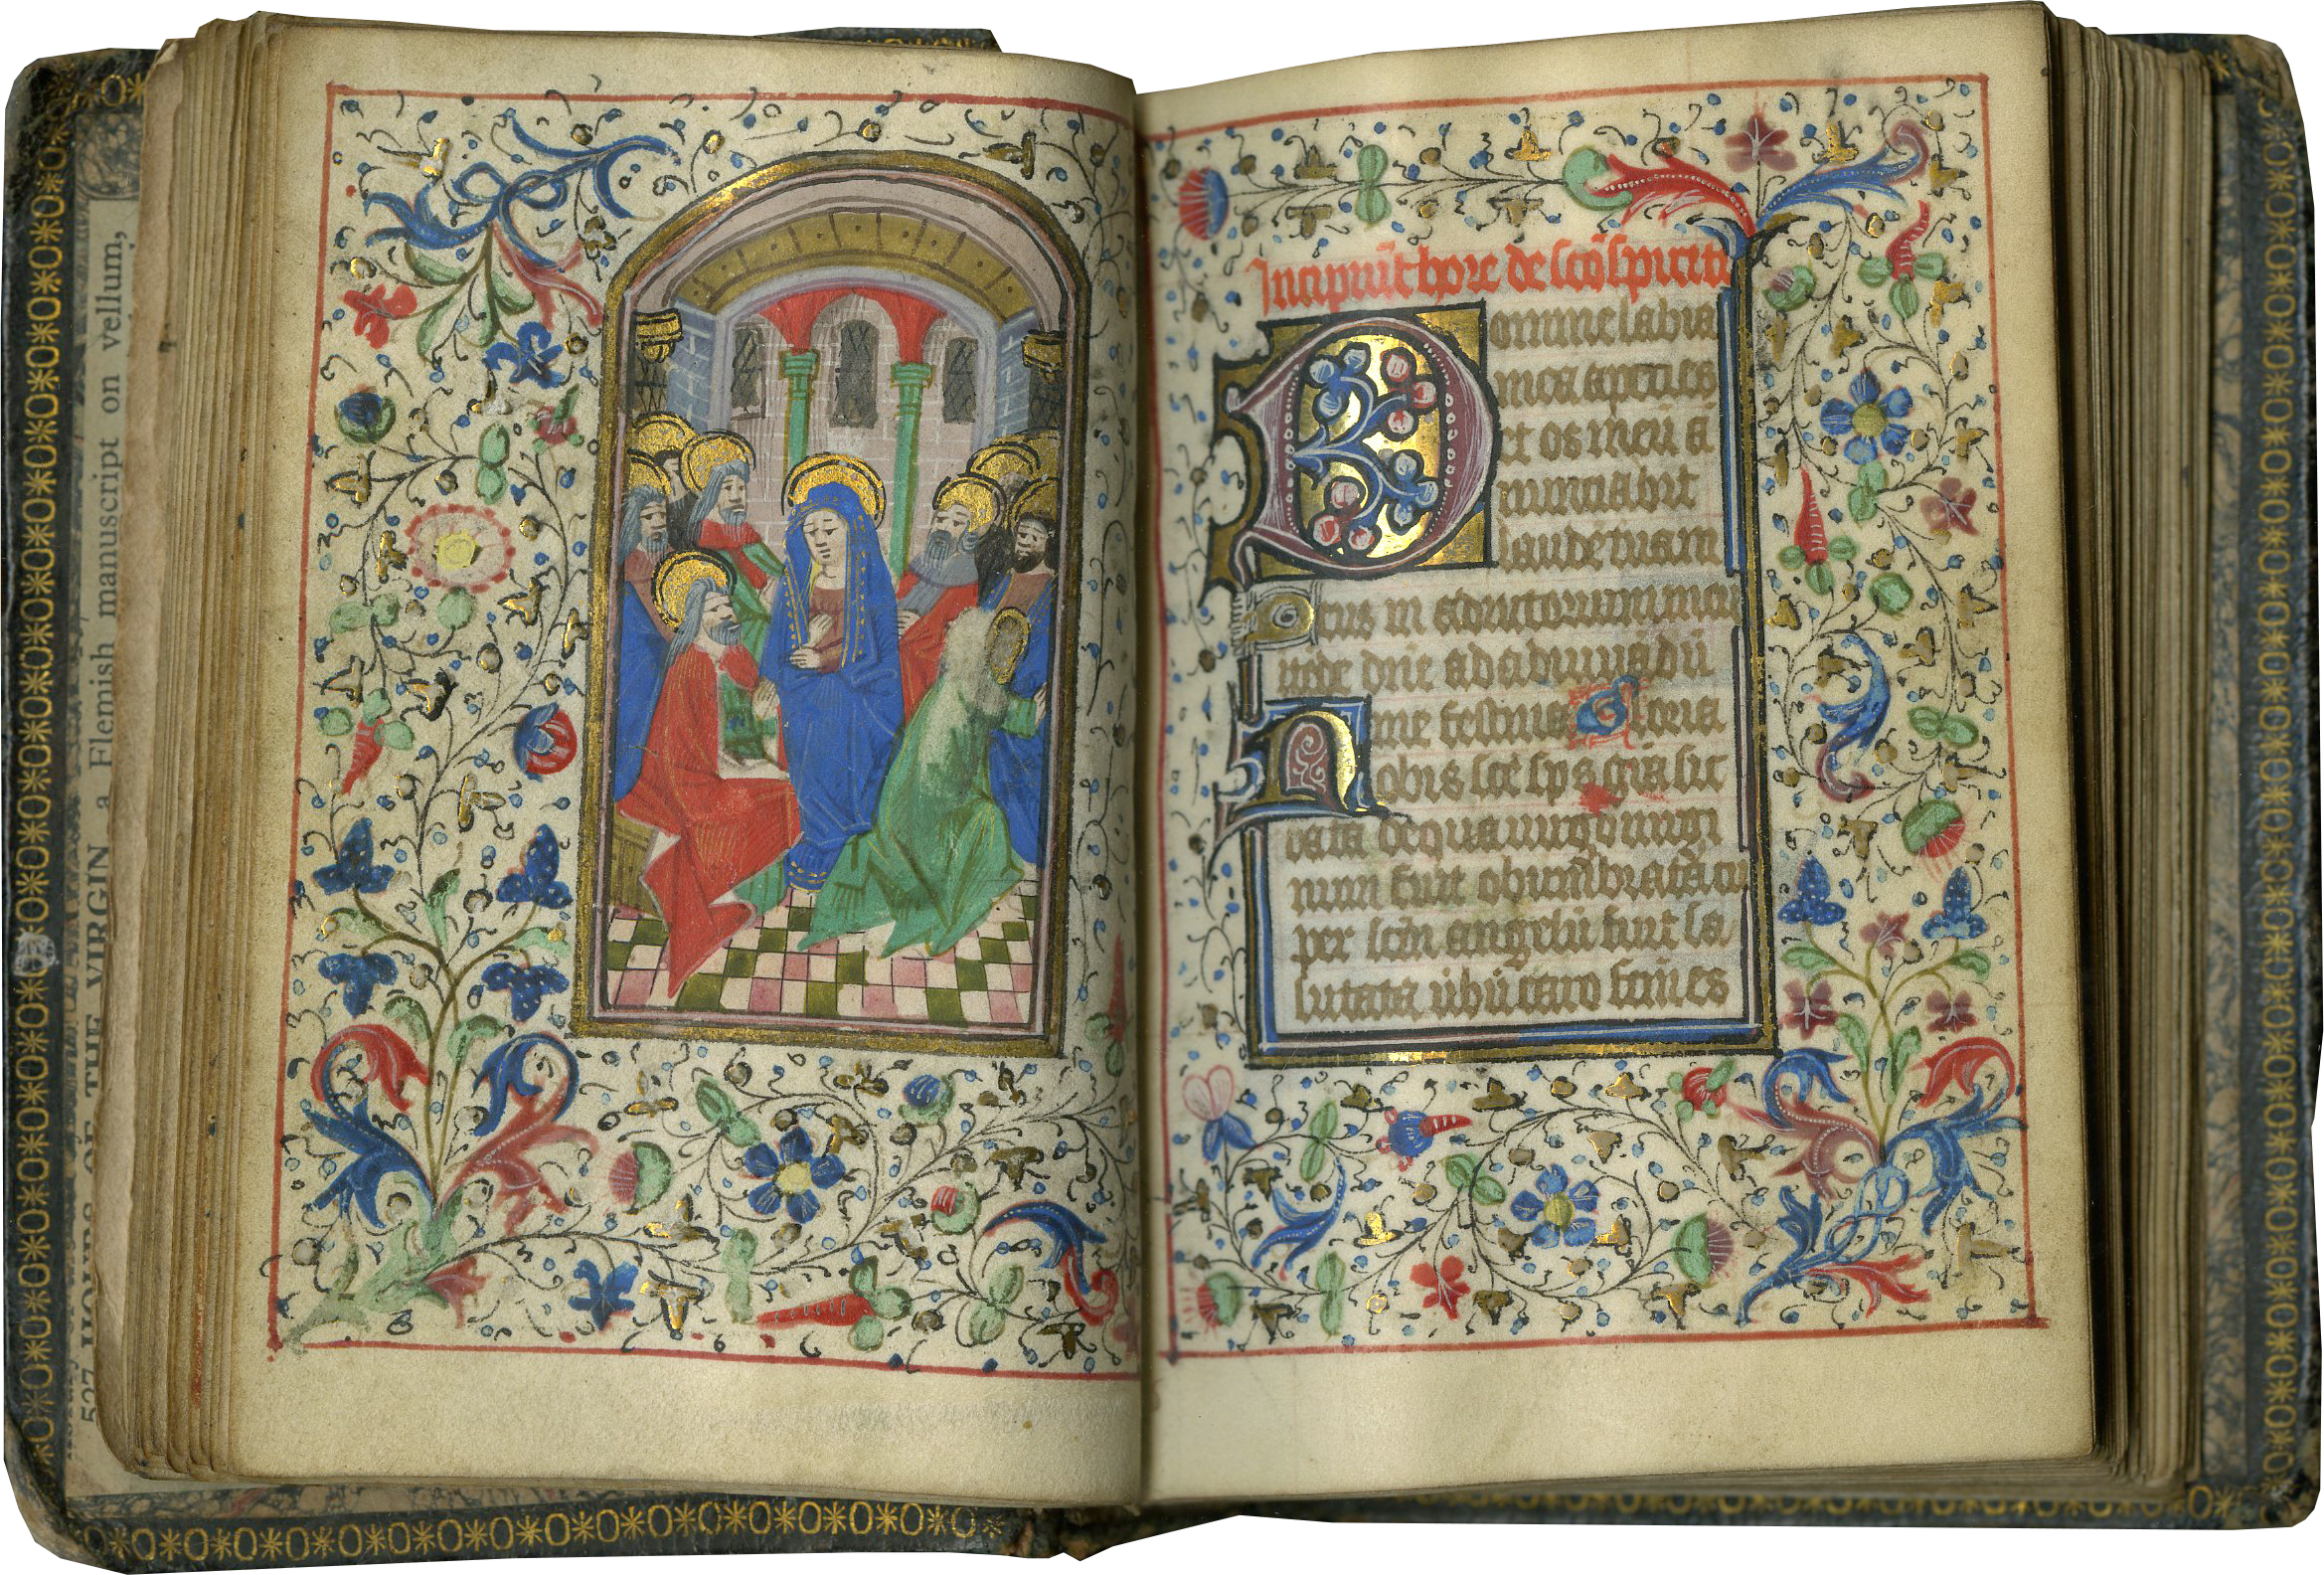 527 HOURS OF THE VIRGIN, a Flemish manuscript on vellum,
Incipiūt hore de sc̄o spiritu
Domine labia
mea aperies
et os meū a
nunciabit
laudē tuam
Deus in adiutorium meū
intēde dn̄e ad adiuuādū
me festina Gloria
Nobis sc̄e sp̄s gr̄a sit
data de qua uirgo uirgi
num fuit obumbrata cū
per sc̄m angelū fuit sa
lutata ūbū caro fc̄m es